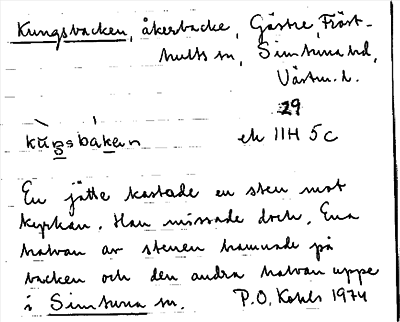 Kungsbacken, åkerbacke, Gästre, Fröst-
hults sn, Simtuna hd,
Västm. l.
29
kùŋsbákən ek 11H 5c
En jätte kastade en sten mot
kyrkan. Han missade doch. Ena
halvan av stenen hamnade på
backen och den andra halvan uppe
i Simtuna sn. P.O. Kohls 1974